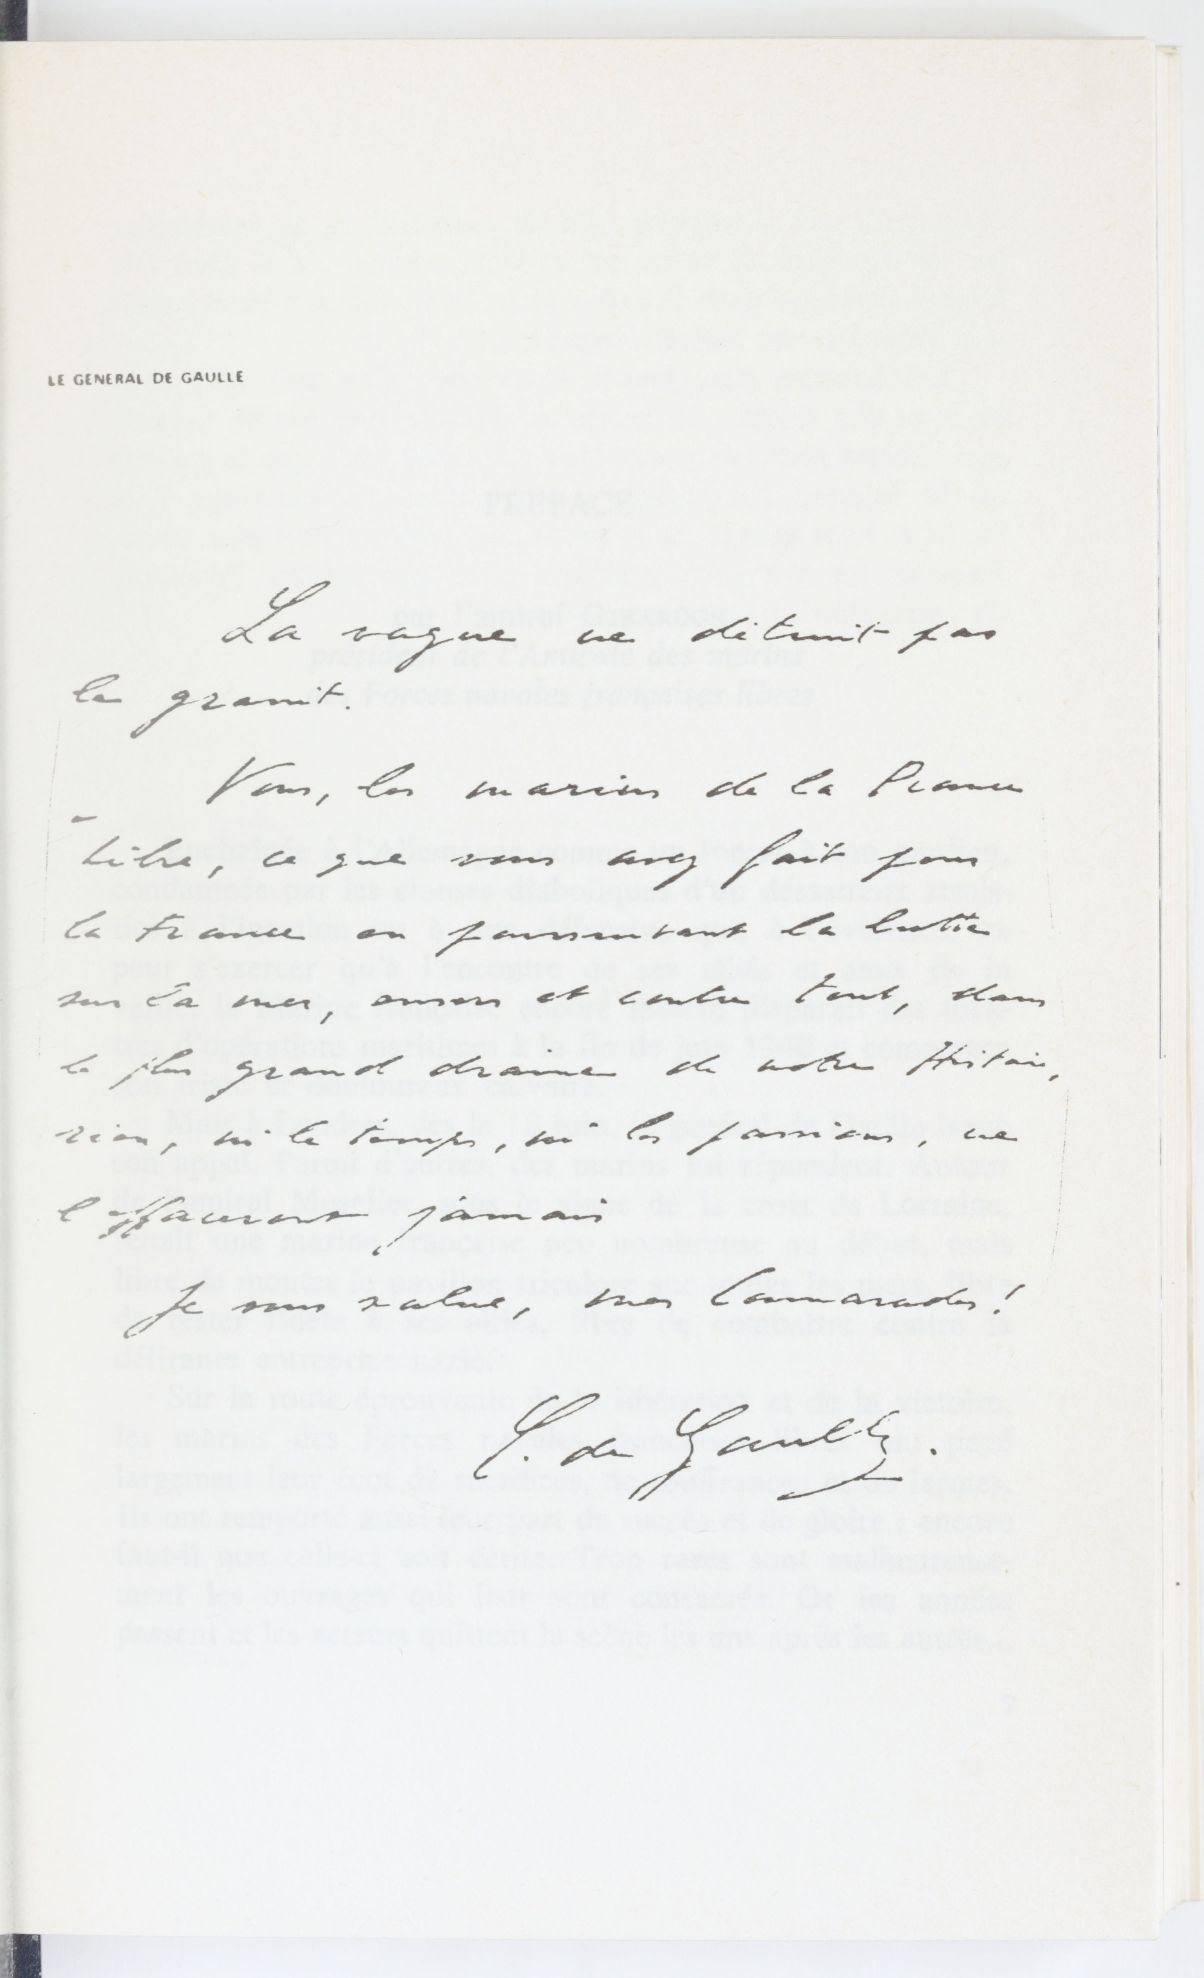 LE GENERAL DE GAULLE
La vague ne détruit pas
le granit.
Vous, les marins de la France
Libre, ce que vous avez fait pour
la France en poursuivant la lutte
sur la mer, envers et contre tout, dans
le plus grand drame de notre Histoire,
rien, ni le temps, ni les passions, ne
l'effaceront jamais
Je vous salue, mes Camarades!
C. de Gaulle.